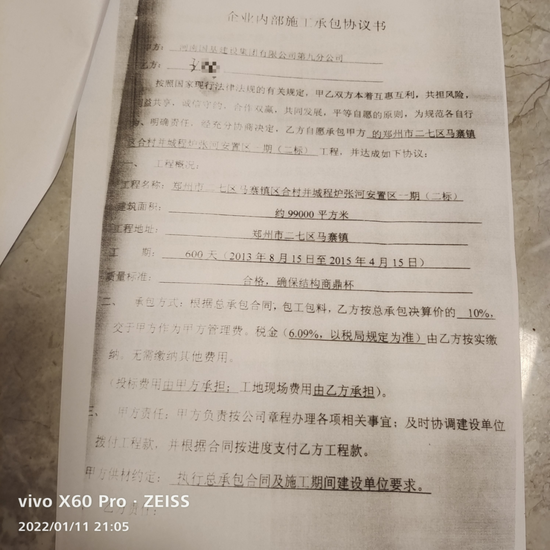 企业内部施工承包协议书
甲方：河南国基建设集团有限公司第九分公司
乙方：王
按照国家现行法律法规的有关规定，甲乙双方本着互惠互利，共担风险，
利益共享，诚信守约，合作双赢，共同发展，平等自愿的原则，为规范各自行
为、明确责任，经充分协商决定，乙方自愿承包甲方 的郑州市二七区马寨镇
区合村并城程炉张河安置区一期（二标） 工程，并达成如下协议：
一、 工程概况：
工程名称：郑州市二七区马寨镇区合村并城程炉张河安置区一期（二标）
建筑面积： 约 99000 平方米
工程地址： 郑州市二七区马寨镇
工 期： 600 天（2013 年 8 月 15 日至 2015 年 4 月 15 日）
质量标准： 合格，确保结构商鼎杯
二、 承包方式：根据总承包合同，包工包料，乙方按总承包决算价的 10%，
交于甲方作为甲方管理费。税金（6.09%，以税局规定为准）由乙方按实缴
纳。无需缴纳其他费用。
（投标费用由甲方承担；工地现场费用由乙方承担）。
三、 甲方责任：甲方负责按公司章程办理各项相关事宜；及时协调建设单位
拨付工程款，并根据合同按进度支付乙方工程款。
甲方供材约定： 执行总承包合同及施工期间建设单位要求。
vivo X60 Pro · ZEISS
2022/01/11 21:05